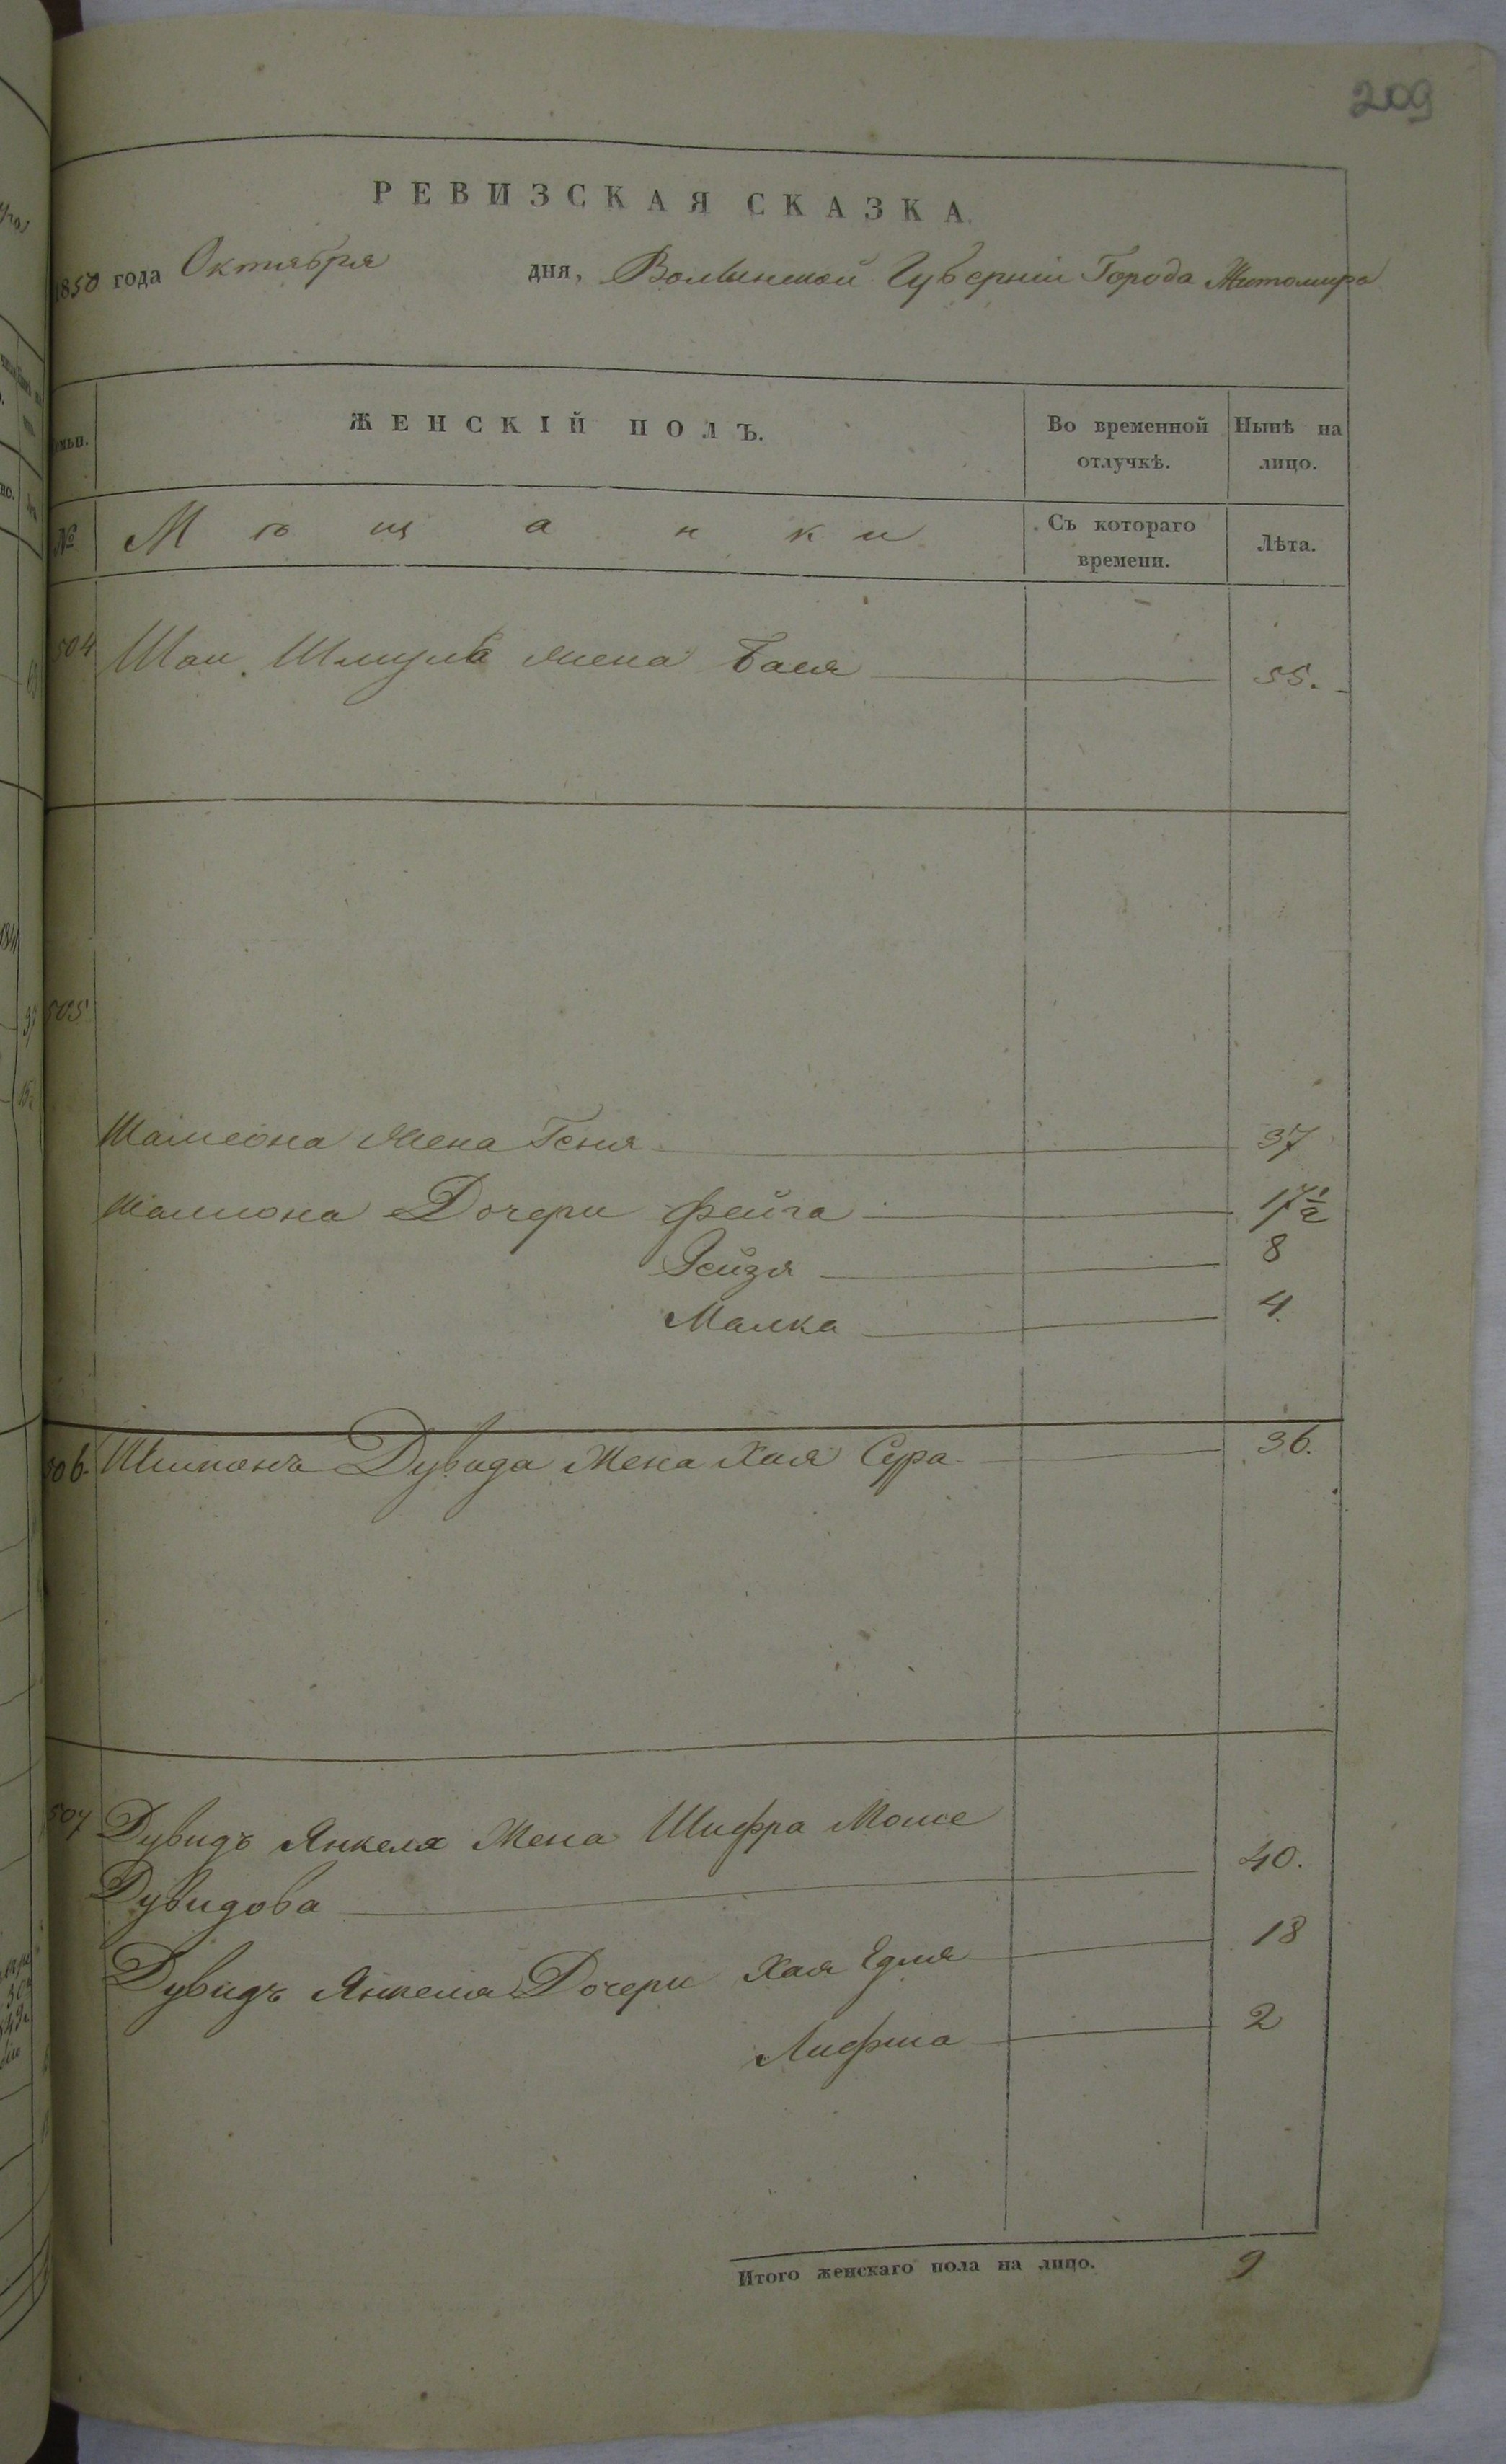 209
РЕВИЗСКАЯ СКАЗКА.
1850 года Октября дня, Волынской Губерніи Города Житомира
Семьи. ЖЕНСКІЙ ПОЛЪ. Во временной отлучкѣ. Нынѣ на лицо.
№ Мѣщанки Съ котораго времени. Лѣта.
504 Шаи Шмуля жена Бася 55.
505
Шамсона Жена Геня 37
Шамсона Дочери Фейга 17½
Рейзя 8
Малка 4.
506. Шимонъ Дувида Жена Хая Сура 36.
507 Дувидъ Янкеля Жена Шифра Моше
Дувидова 40.
Дувидъ Янкеля Дочери Хая Едля 18
Лифша 2
Итого женскаго пола на лицо. 9